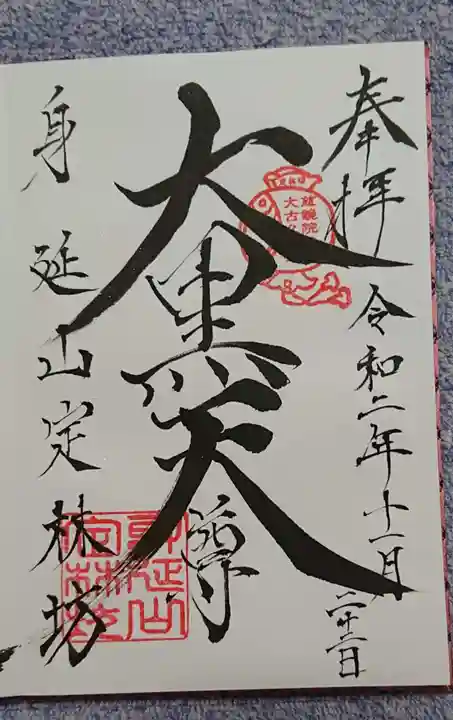 奉拝
令和二年十一月二十二日
大黒天
尊
身延山定林坊
身延山
定林坊